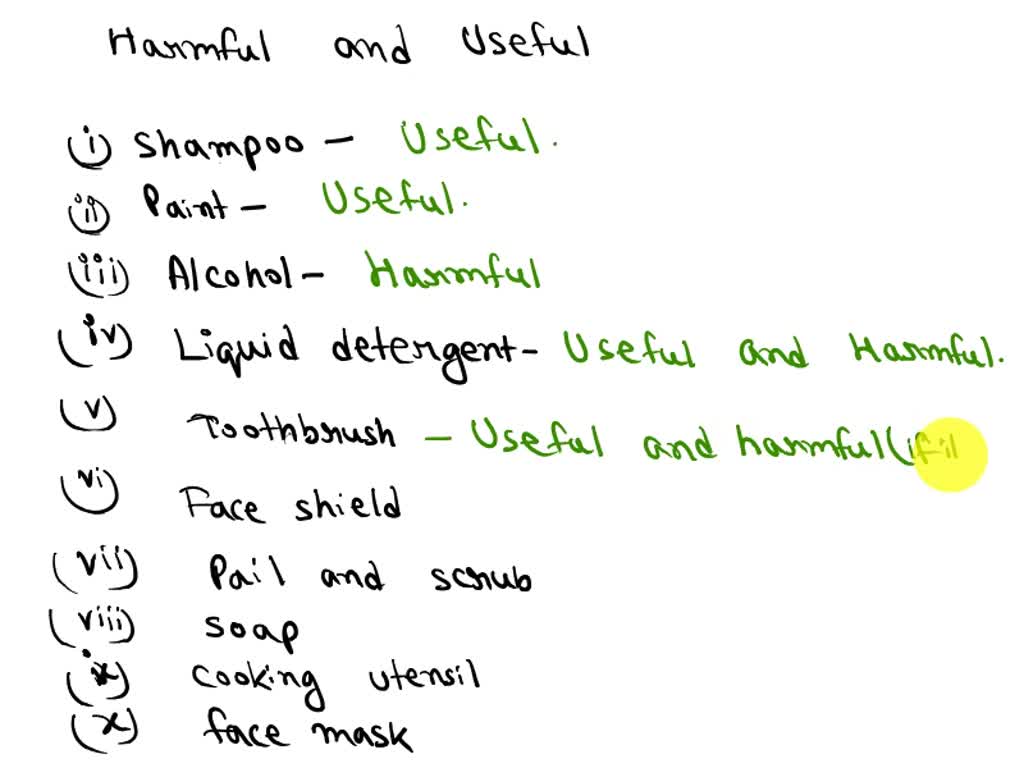 Harmful and Useful
(i) Shampoo - Useful.
(ii) Paint - Useful.
(iii) Alcohol - Harmful
(iv) Liquid detergent - Useful and Harmful.
(v) Toothbrush - Useful and harmful (if
(vi) Face shield
(vii) Pail and scrub
(viii) soap
(ix) cooking utensil
(x) face mask